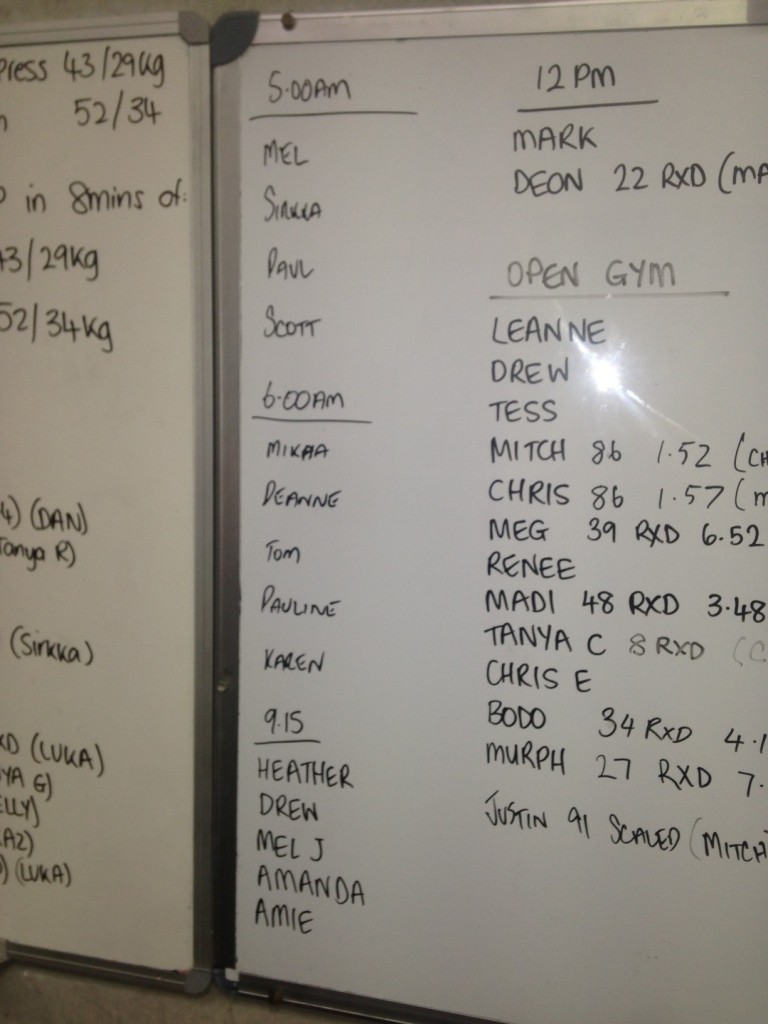 Press 43/29kg
52/34
in 8mins of:
43/29kg
52/34kg
4) (DAN)
Tanya R)
(Sirkka)
XD (LUKA)
YA G)
ELLY)
A2)
) (LUKA)
5:00AM
MEL
SIRKKA
PAUL
SCOTT
6:00AM
MIKAA
DEANNE
TOM
PAULINE
KAREN
9.15
HEATHER
DREW
MEL J
AMANDA
AMIE
12 PM
MARK
DEON 22 RXD (MA
OPEN GYM
LEANNE
DREW
TESS
MITCH 86 1.52 (CH
CHRIS 86 1.57 (M
MEG 39 RXD 6.52
RENEE
MADI 48 RXD 3.48
TANYA C 8 RXD (C
CHRIS E
BODO 34 RXD 4.1
MURPH 27 RXD 7.
JUSTIN 91 SCALED (MITCH